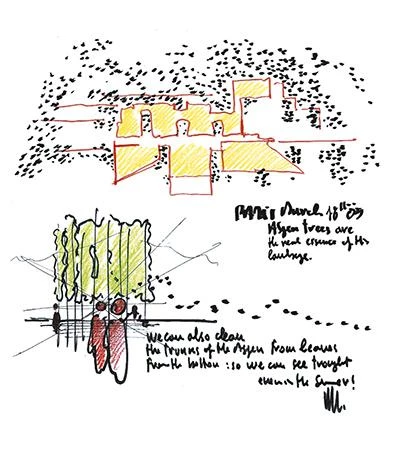 March 18th 09
Aspen trees are
the real essence of this
We can also clean
the trunks of the Aspen from leaves
From the bottom : so we can see trought
even in the Summer!